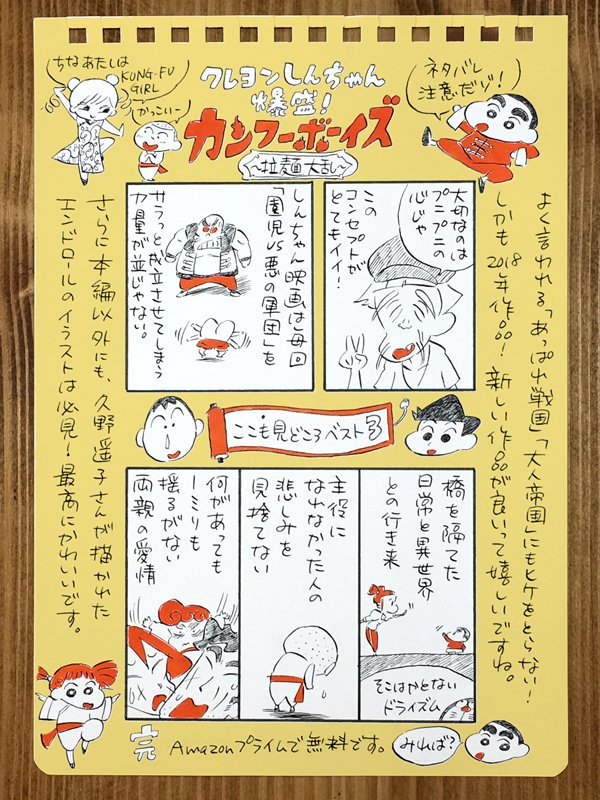 ちなあたしは
KUNG-FU
GIRL
かっこいー
クレヨンしんちゃん
爆盛!
カンフーボーイズ
拉麺大乱
ネタバレ
注意だゾ!
よく言われる「あっぱれ戦国」「大人帝国」にもヒケをとらない!
しかも2018年作品!新しい作品が良いって嬉しいですね。
大切なのは
プニプニの
心じゃ
この
コンセプトが
とてもイイ!
しんちゃん映画は毎回
「園児VS悪の軍団」を
サラっと成立させてしまう
力量が並じゃない。
ここも見どころベスト3
橋を隔てた
日常と異世界
との行き来
そこはかとない
ドライズム
主役に
なれなかった人の
悲しみを
見捨てない
何があっても
1ミリも
揺るがない
両親の愛情
さらに本編以外にも、久野遥子さんが描かれた
エンドロールのイラストは必見!最高にかわいいです。
完
Amazonプライムで無料です。
みれば?